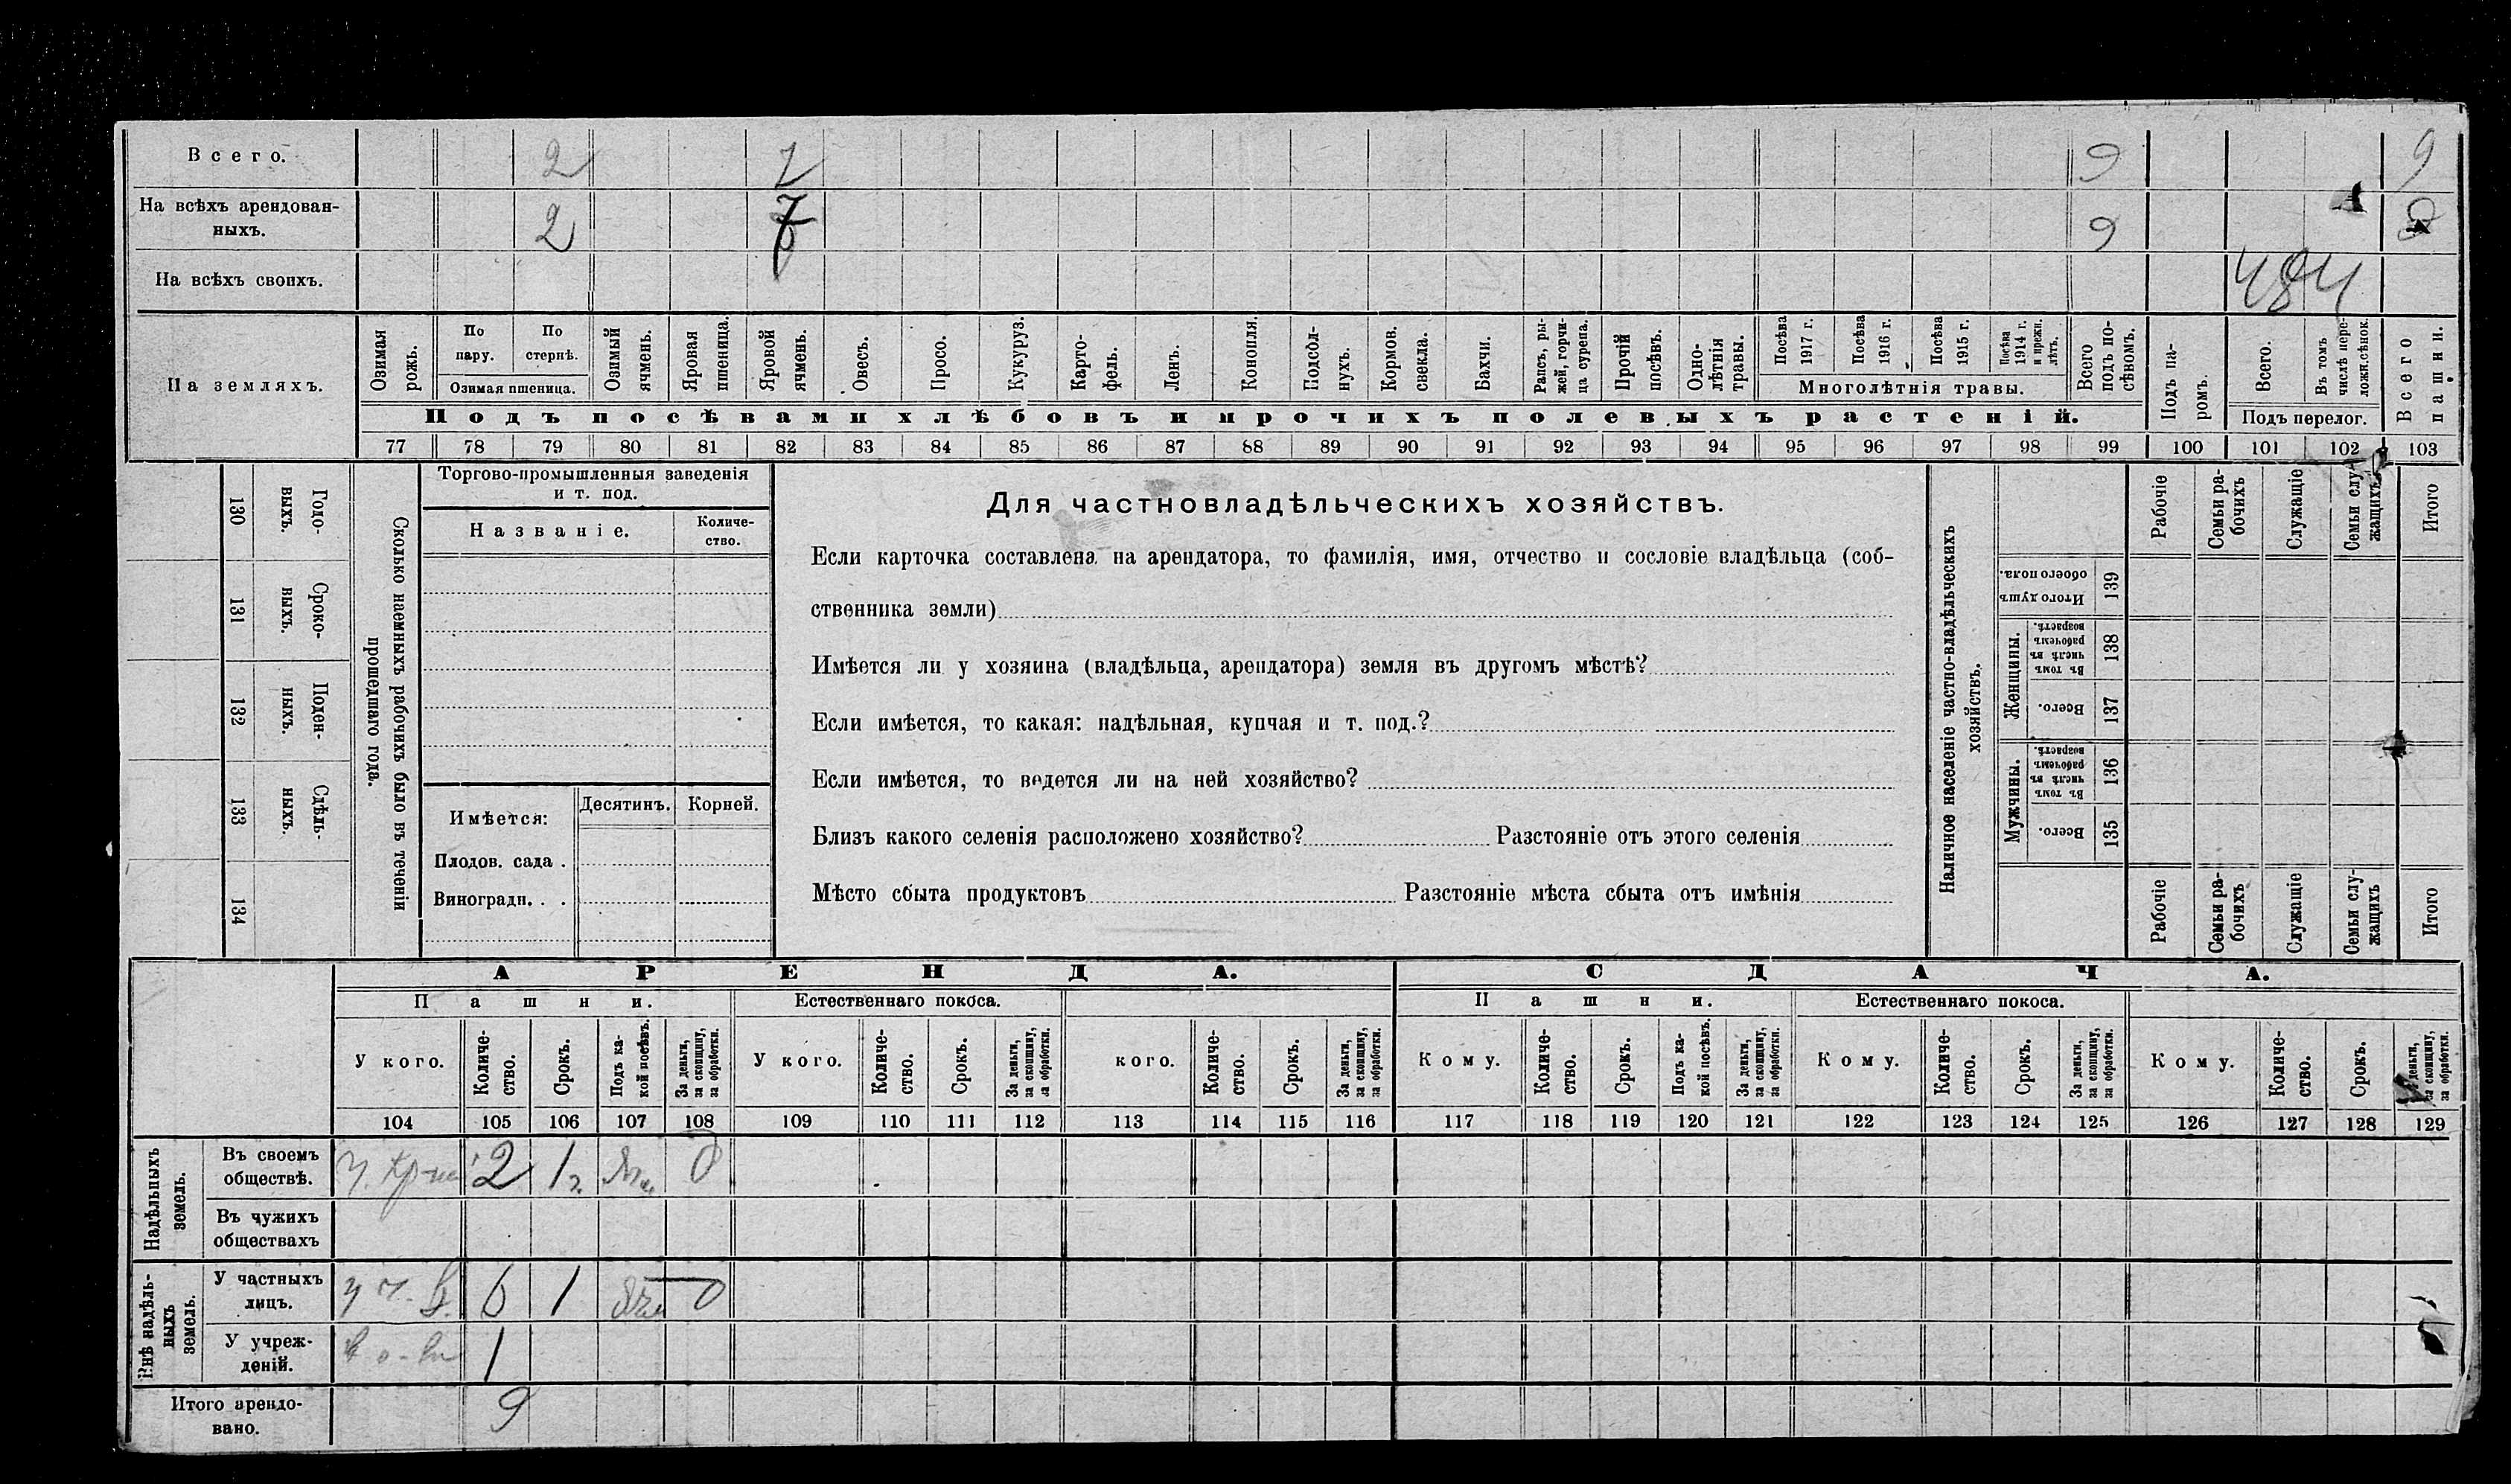 Всего. 2 7 9 9
На всѣхъ арендован-
ныхъ. 2 7 9
На всѣхъ своихъ. 484
На земляхъ.
Озимая
рожь.
По
пару.
По
стернѣ.
Озимая пшеница.
Озимый
ячмень.
Яровая
пшеница.
Яровой
ячмень.
Овесъ.
Просо.
Кукуруз.
Карто-
фель.
Ленъ.
Конопля.
Подсол-
нухъ.
Кормов.
свекла.
Бахчи.
Рапсъ, ры-
жей, горчи-
ца сурепа.
Прочій
посѣвъ.
Одно-
лѣтнія
травы.
Посѣва
1917 г.
Посѣва
1916 г.
Посѣва
1915 г.
Посѣва
1914 г.
и прежн.
лѣтъ.
Многолѣтнія травы.
Всего
подъ по-
сѣвомъ.
Подъ па-
ромъ.
Всего.
Въ томъ
числѣ пере-
ложн.сѣнок.
Подъ перелог.
Всего
пашни.
Подъ посѣвами хлѣбовъ и прочихъ полевыхъ растеній.
77 78 79 80 81 82 83 84 85 86 87 88 89 90 91 92 93 94 95 96 97 98 99 100 101 102 103
130
Годо-
выхъ.
131
Сроко-
выхъ.
132
Поден-
ныхъ.
133
Сдѣль-
ныхъ.
134
Сколько наемныхъ рабочихъ было въ теченіи
прошедшаго года.
Торгово-промышленныя заведенія
и т. под.
Названіе.
Количе-
ство.
Имѣется:
Десятинъ. Корней.
Плодов. сада .
Виноградн. . .
Для частновладѣльческихъ хозяйствъ.
Если карточка составлена на арендатора, то фамилія, имя, отчество и сословіе владѣльца (соб-
ственника земли)
Имѣется ли у хозяина (владѣльца, арендатора) земля въ другомъ мѣстѣ?
Если имѣется, то какая: надѣльная, купчая и т. под.?
Если имѣется, то ведется ли на ней хозяйство?
Близъ какого селенія расположено хозяйство? Разстояніе отъ этого селенія
Мѣсто сбыта продуктовъ Разстояніе мѣста сбыта отъ имѣнія
Наличное населеніе частно-владѣльческихъ
хозяйствъ.
Рабочіе
Семьи ра-
бочихъ
Служащіе
Семьи слу-
жащихъ
Итого
Итого душъ
обоего пола.
139
Женщины.
Въ томъ
числѣ въ
рабочемъ
возрастѣ.
138
Всего.
137
Мужчины.
Въ томъ
числѣ въ
рабочемъ
возрастѣ.
136
Всего.
135
Рабочіе
Семьи ра-
бочихъ
Служащіе
Семьи слу-
жащихъ
Итого
АРЕНДА. СДАЧА.
Пашни. Естественнаго покоса. Пашни. Естественнаго покоса.
У кого.
Количе-
ство.
Срокъ.
Подъ ка-
кой посѣвъ.
За деньги,
за скопщину,
за обработки.
У кого.
Количе-
ство.
Срокъ.
За деньги,
за скопщину,
за обработки.
кого.
Количе-
ство.
Срокъ.
За деньги,
за скопщину,
за обработки.
Кому.
Количе-
ство.
Срокъ.
Подъ ка-
кой посѣвъ.
За деньги,
за скопщину,
за обработки.
Кому.
Количе-
ство.
Срокъ.
За деньги,
за скопщину,
за обработки.
Кому.
Количе-
ство.
Срокъ.
За деньги,
за скопщину,
за обработки.
104 105 106 107 108 109 110 111 112 113 114 115 116 117 118 119 120 121 122 123 124 125 126 127 128 129
Надѣльныхъ
земель.
Въ своемъ
обществѣ. 2 1
Въ чужихъ
обществахъ
Внѣ надѣль-
ныхъ
земель.
У частныхъ
лицъ. 6 1
У учреж-
деній. 1
Итого арендо-
вано. 9